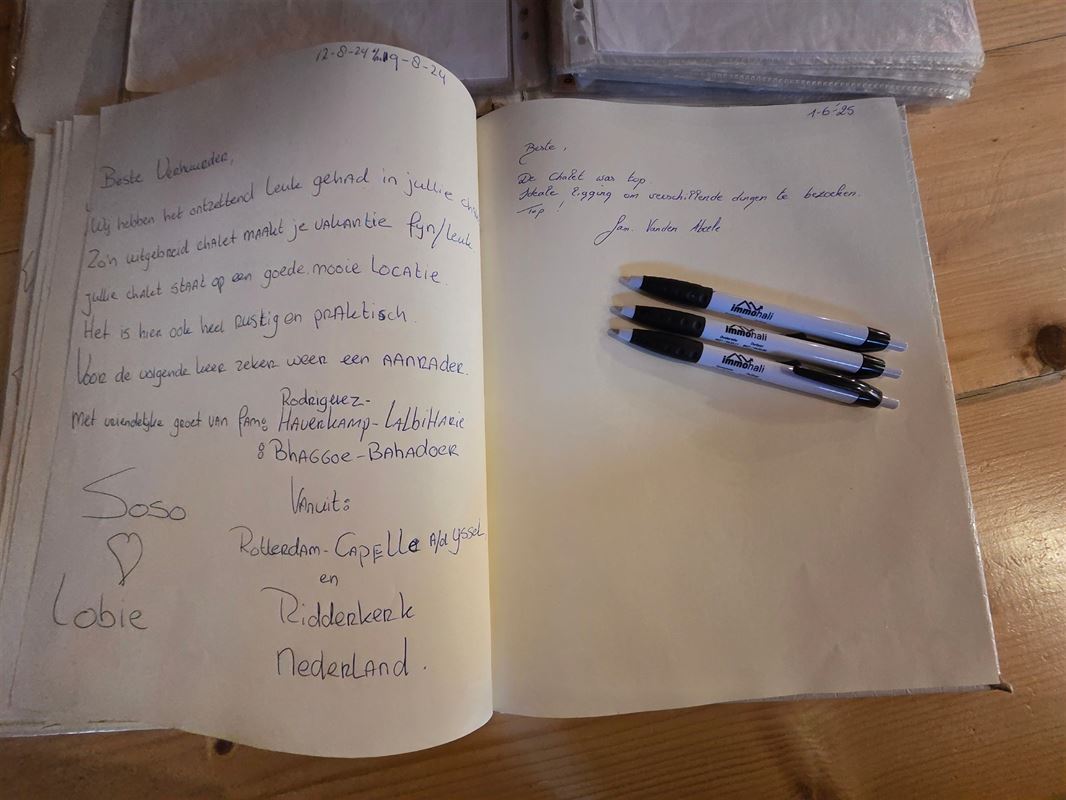 12-8-24 t/m 19-8-24
Beste Verhuurder,
Wij hebben het ontzettend leuk gehad in jullie
Zo'n uitgebreid chalet maakt je vakantie fijn/leuk.
jullie chalet staat op een goede mooie locatie.
Het is hier ook heel rustig en praktisch.
Voor de volgende keer zeker weer een AANRADER.
Met vriendelijke groet van fam: Rodriguez-
Haverkamp-Lalbiharie
& Bhaggoe-Bahadoer
Vanuit:
Rotterdam-Capelle a/d Yssel
en
Ridderkerk
Nederland.
Soso
Lobie
1-6-'25
Beste,
De chalet was top.
Ideale ligging om verschillende dingen te bezoeken.
Top!
Fam. Vanden Abeele
immohali
immohali
immohali